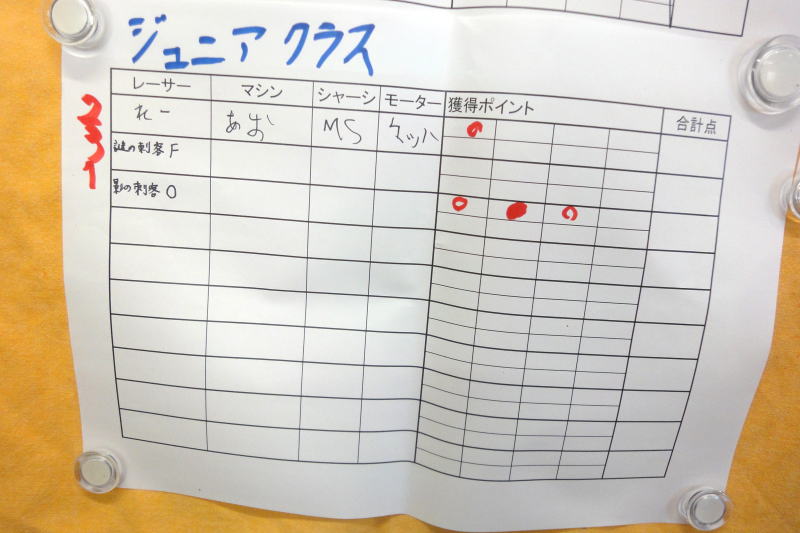 ジュニア クラス
レーサー マシン シャーシ モーター 獲得ポイント 合計点
れー あお MS マッハ
謎の刺客 F
影の刺客 O